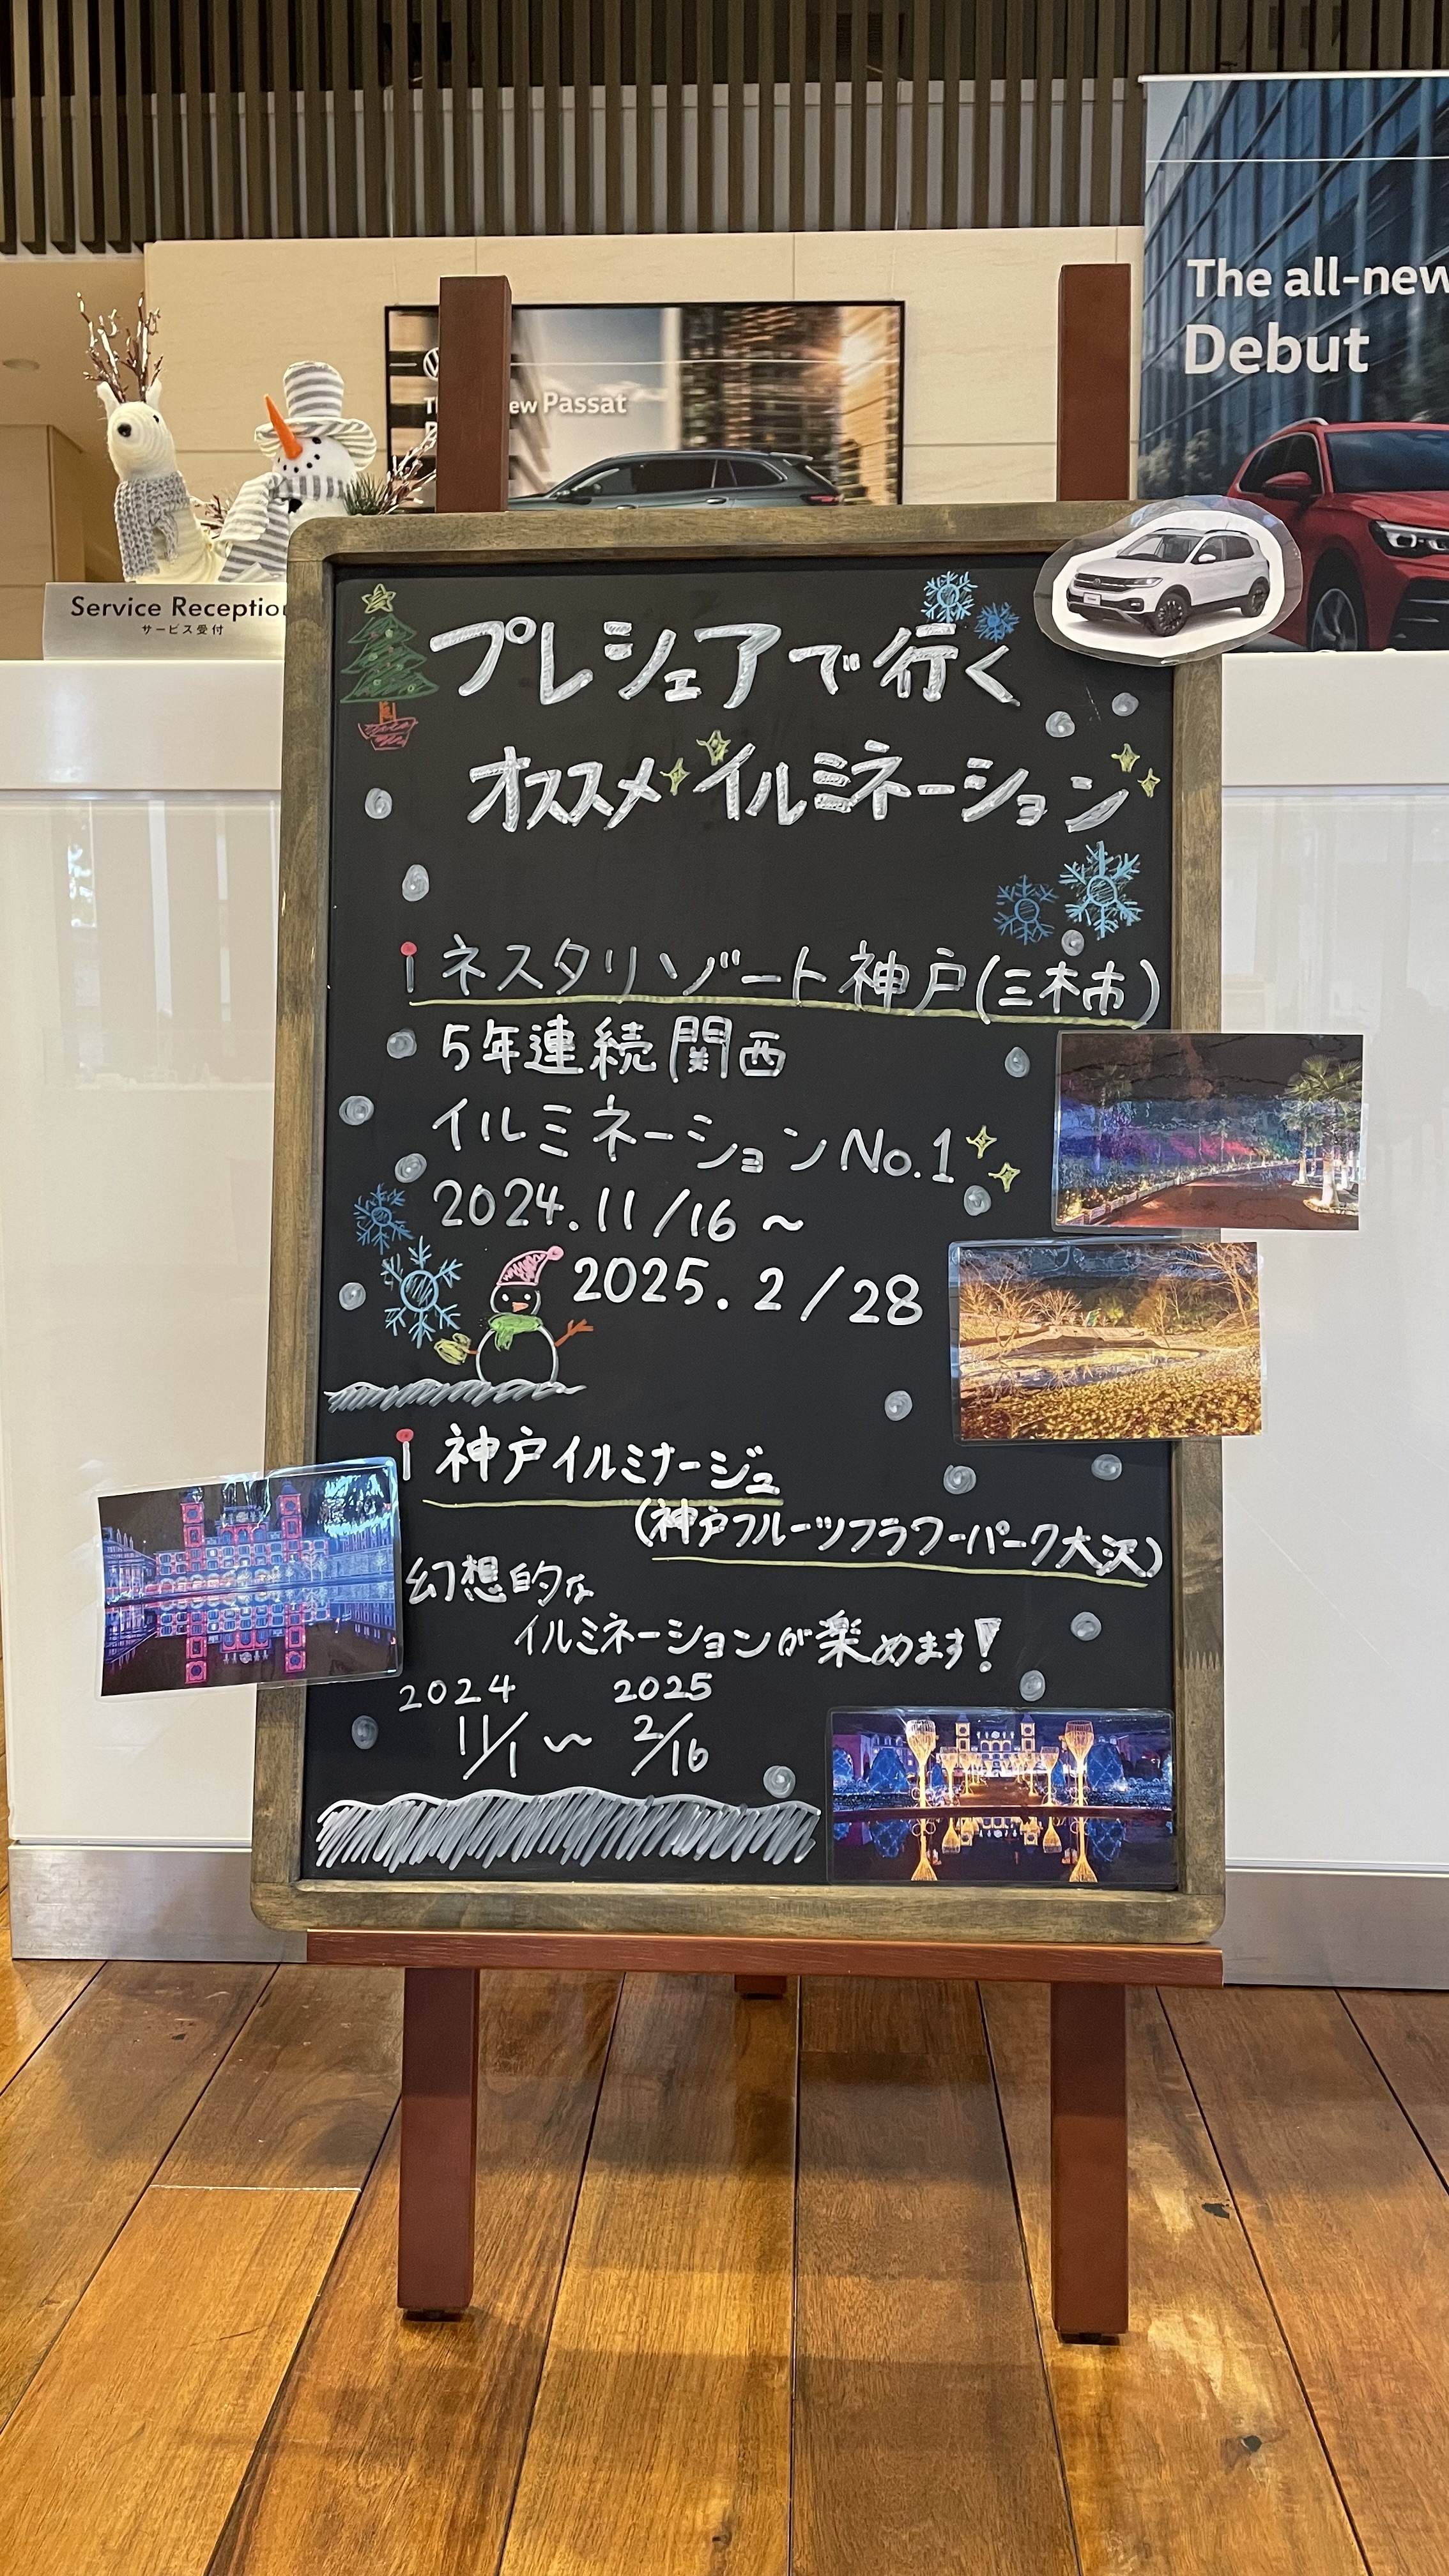 The all-new
Debut
ew Passat
Service Reception
サービス受付
プレシェアで行く
オススメイルミネーション
ネスタリゾート神戸(三木市)
5年連続関西
イルミネーションNo.1
2024.11/16~
2025.2/28
神戸イルミナージュ
(神戸フルーツフラワーパーク大沢)
幻想的な
イルミネーションが楽めます!
2024 2025
11/1 ~ 2/16